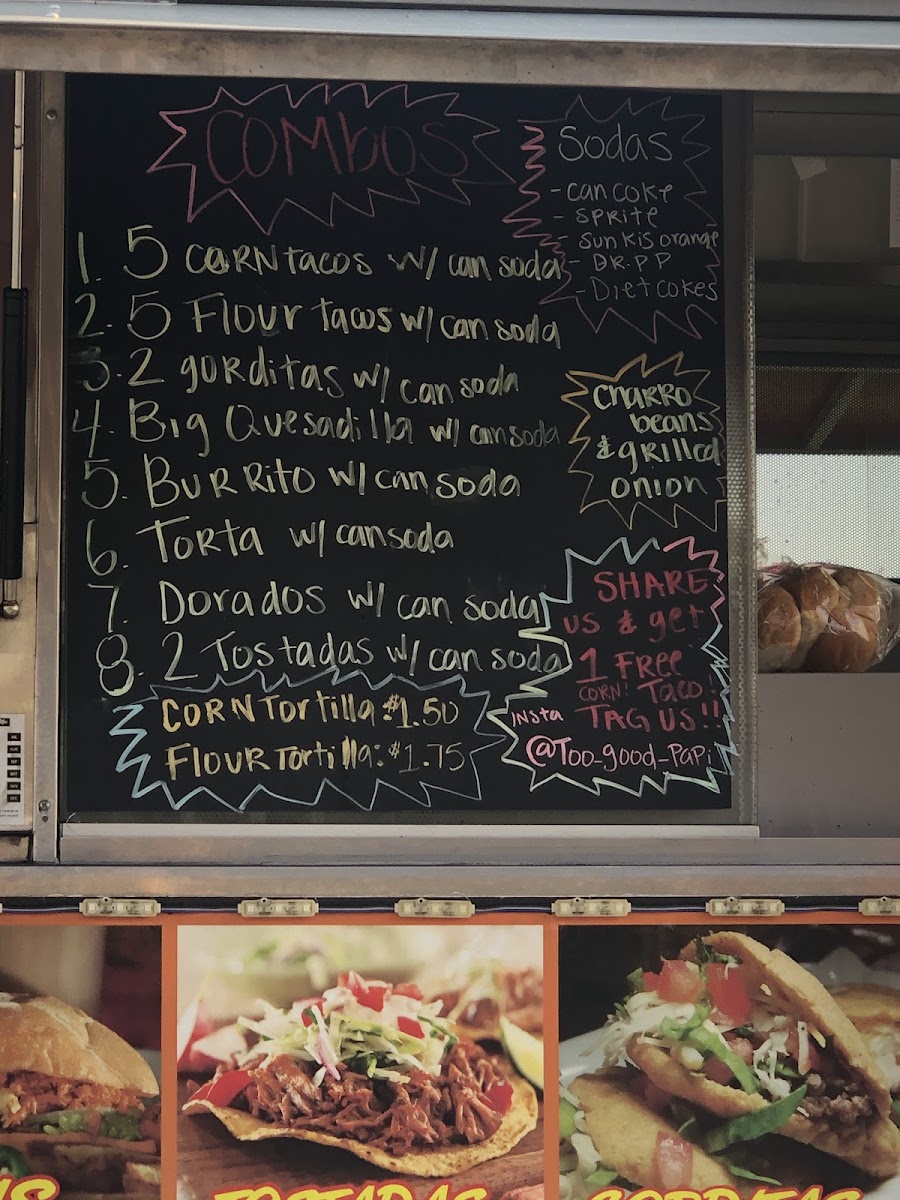 COMbOS
1. 5 CORN tacos w/ can soda
2. 5 Flour tacos w/ can soda
3. 2 gorditas w/ can soda
4. Big Quesadilla w/ can soda
5. Burrito w/ can soda
6. Torta w/ can soda
7. Dorados w/ can soda
8. 2 Tostadas w/ can soda
CORN Tortilla: $1.50
Flour Tortilla: $1.75
Sodas
- can coke
- Sprite
- Sunkis orange
- DR. PP
- Diet cokes
Charro
beans
& grilled
onion
SHARE
us & get
1 FREE
CORN! Taco!
TAG US!!
INSTA
@Too_good_Papi
TOSTADAS
GORDITAS